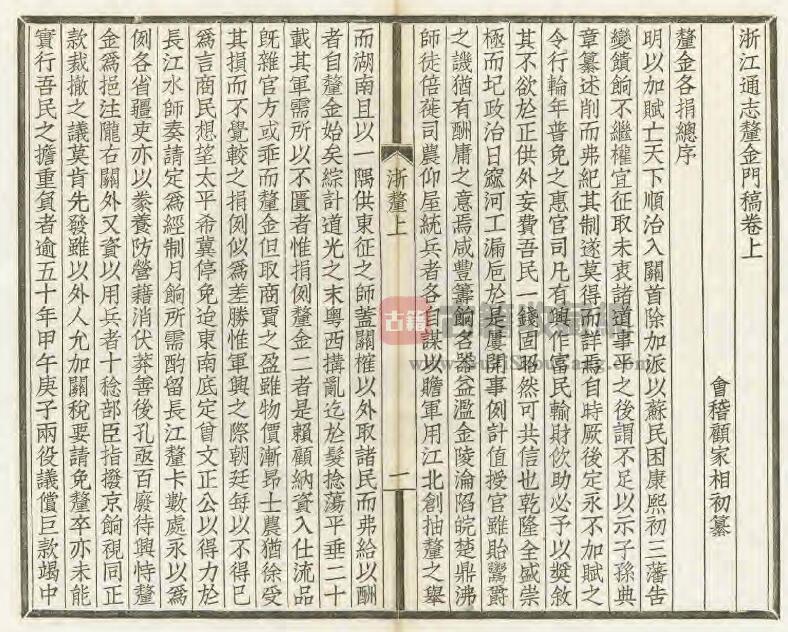 浙江通志釐金門稿卷上
會稽顧家相初纂
釐金各捐總序
明以加賦亡天下順治入關首除加派以蘇民困康熙初三藩告
變饋餉不繼權宜征取未衷諸道事平之後謂不足以示子孫典
章纂述削而弗紀其制遂莫得而詳焉自時厥後定永不加賦之
令行輪年普免之惠官司凡有興作富民輸財佽助必予以獎敘
其不欲於正供外妄費吾民一錢固昭然可共信也乾隆全盛崇
極而圮政治日窳河工漏卮於是屢開事例計值授官雖貽鬻爵
之譏猶有酬庸之意焉咸豐籌餉名器益濫金陵淪陷皖楚鼎沸
師徒倍蓰司農仰屋統兵者各自謀以贍軍用江北創抽釐之舉
浙釐上
一
而湖南且以一隅供東征之師蓋關榷以外取諸民而弗給以酬
者自釐金始矣綜計道光之末粵西搆亂迄於髮捻蕩平垂二十
載其軍需所以不匱者惟捐例釐金二者是賴顧納資入仕流品
旣雜官方或乖而釐金但取商賈之盈雖物價漸昂士農猶徐受
其損而不覺較之捐例似爲差勝惟軍興之際朝廷每以不得已
爲言商民想望太平希冀停免迨東南底定曾文正公以得力於
長江水師奏請定爲經制月餉所需酌留長江釐卡數處永以爲
例各省疆吏亦以豢養防營藉消伏莽善後孔亟百廢待興恃釐
金爲挹注隴右關外又資以用兵者十稔部臣指撥京餉視同正
款裁撤之議莫肯先發雖以外人允加關稅要請免釐卒亦未能
實行吾民之擔重負者逾五十年甲午庚子兩役議償巨款竭中
古籍